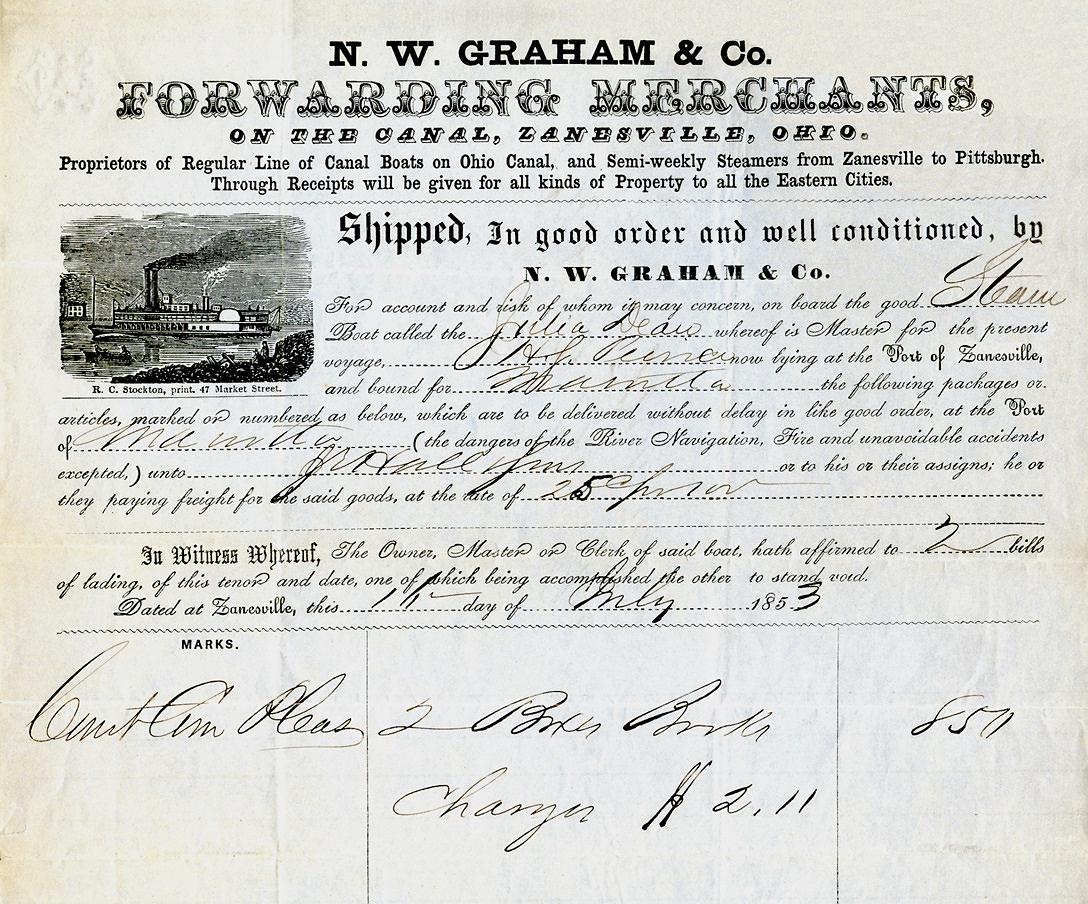 N. W. GRAHAM & Co.
FORWARDING MERCHANTS,
ON THE CANAL, ZANESVILLE, OHIO.
Proprietors of Regular Line of Canal Boats on Ohio Canal, and Semi-weekly Steamers from Zanesville to Pittsburgh.
Through Receipts will be given for all kinds of Property to all the Eastern Cities.
Shipped, In good order and well conditioned, by
N. W. GRAHAM & Co.
For account and risk of whom it may concern, on board the good Steam
Boat called the Julia Dean whereof is Master for the present
voyage, now lying at the Port of Zanesville,
and bound for Marietta the following packages or
R. C. Stockton, print. 47 Market Street.
articles, marked or numbered as below, which are to be delivered without delay in like good order, at the Port
of Marietta (the dangers of the River Navigation, Fire and unavoidable accidents
excepted,) unto Hall or to his or their assigns; he or
they paying freight for the said goods, at the rate of 25
In Witness Whereof, The Owner, Master or Clerk of said boat, hath affirmed to 2 bills
of lading, of this tenor and date, one of which being accomplished the other to stand void.
Dated at Zanesville, this 11 day of July 1853
MARKS.
Court Com Pleas 2 Boxes Books
Charges $ 2.11